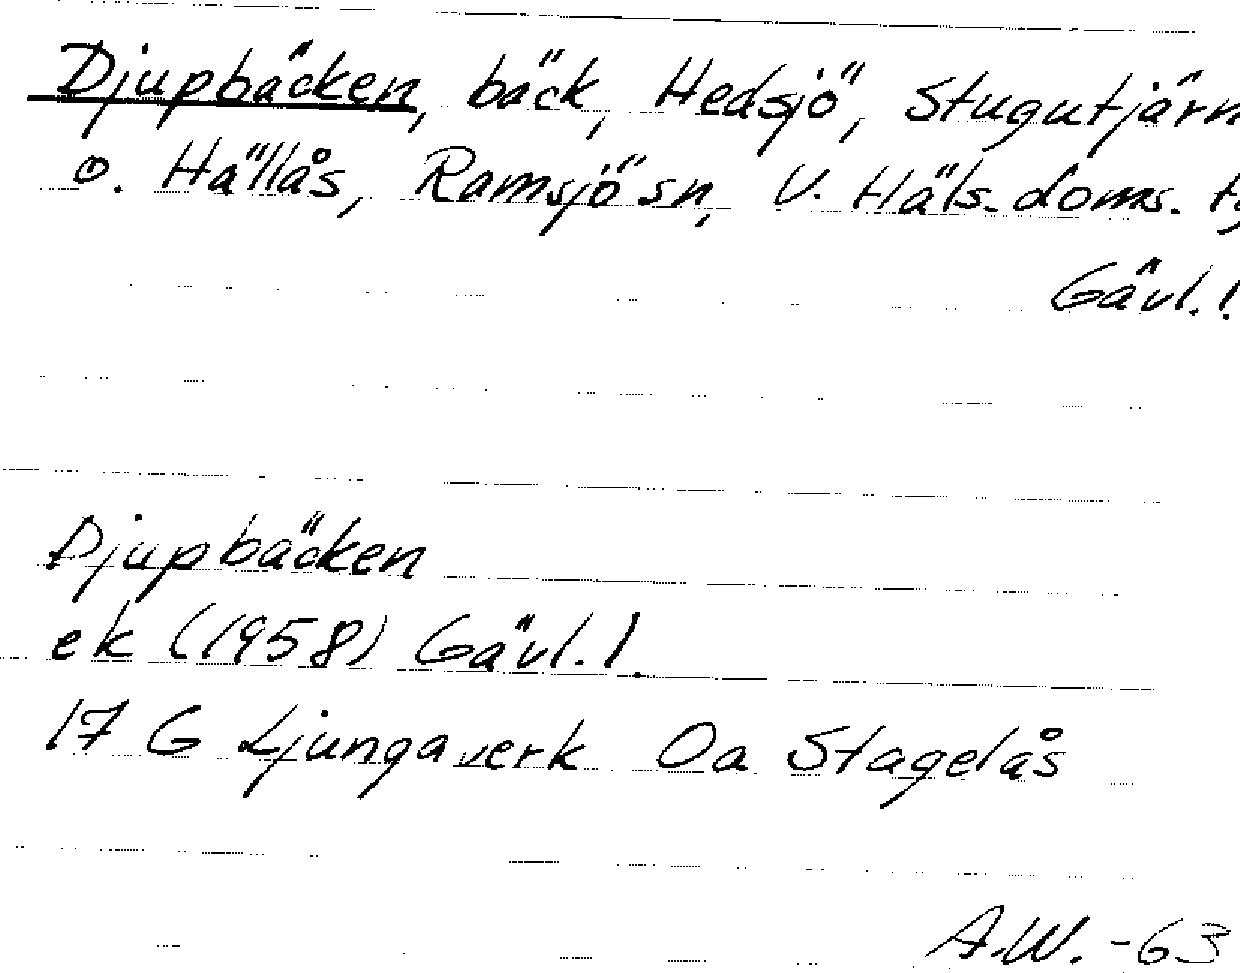 Djupbäcken, bäck, Hedsjö, Stugutjärn
o. Hällås, Ramsjö sn, V. Häls. doms.
Gävl. l.
Djupbäcken
ek (1958) Gävl. l.
17 G Ljungaverk Oa Stagelås
A.W. -63